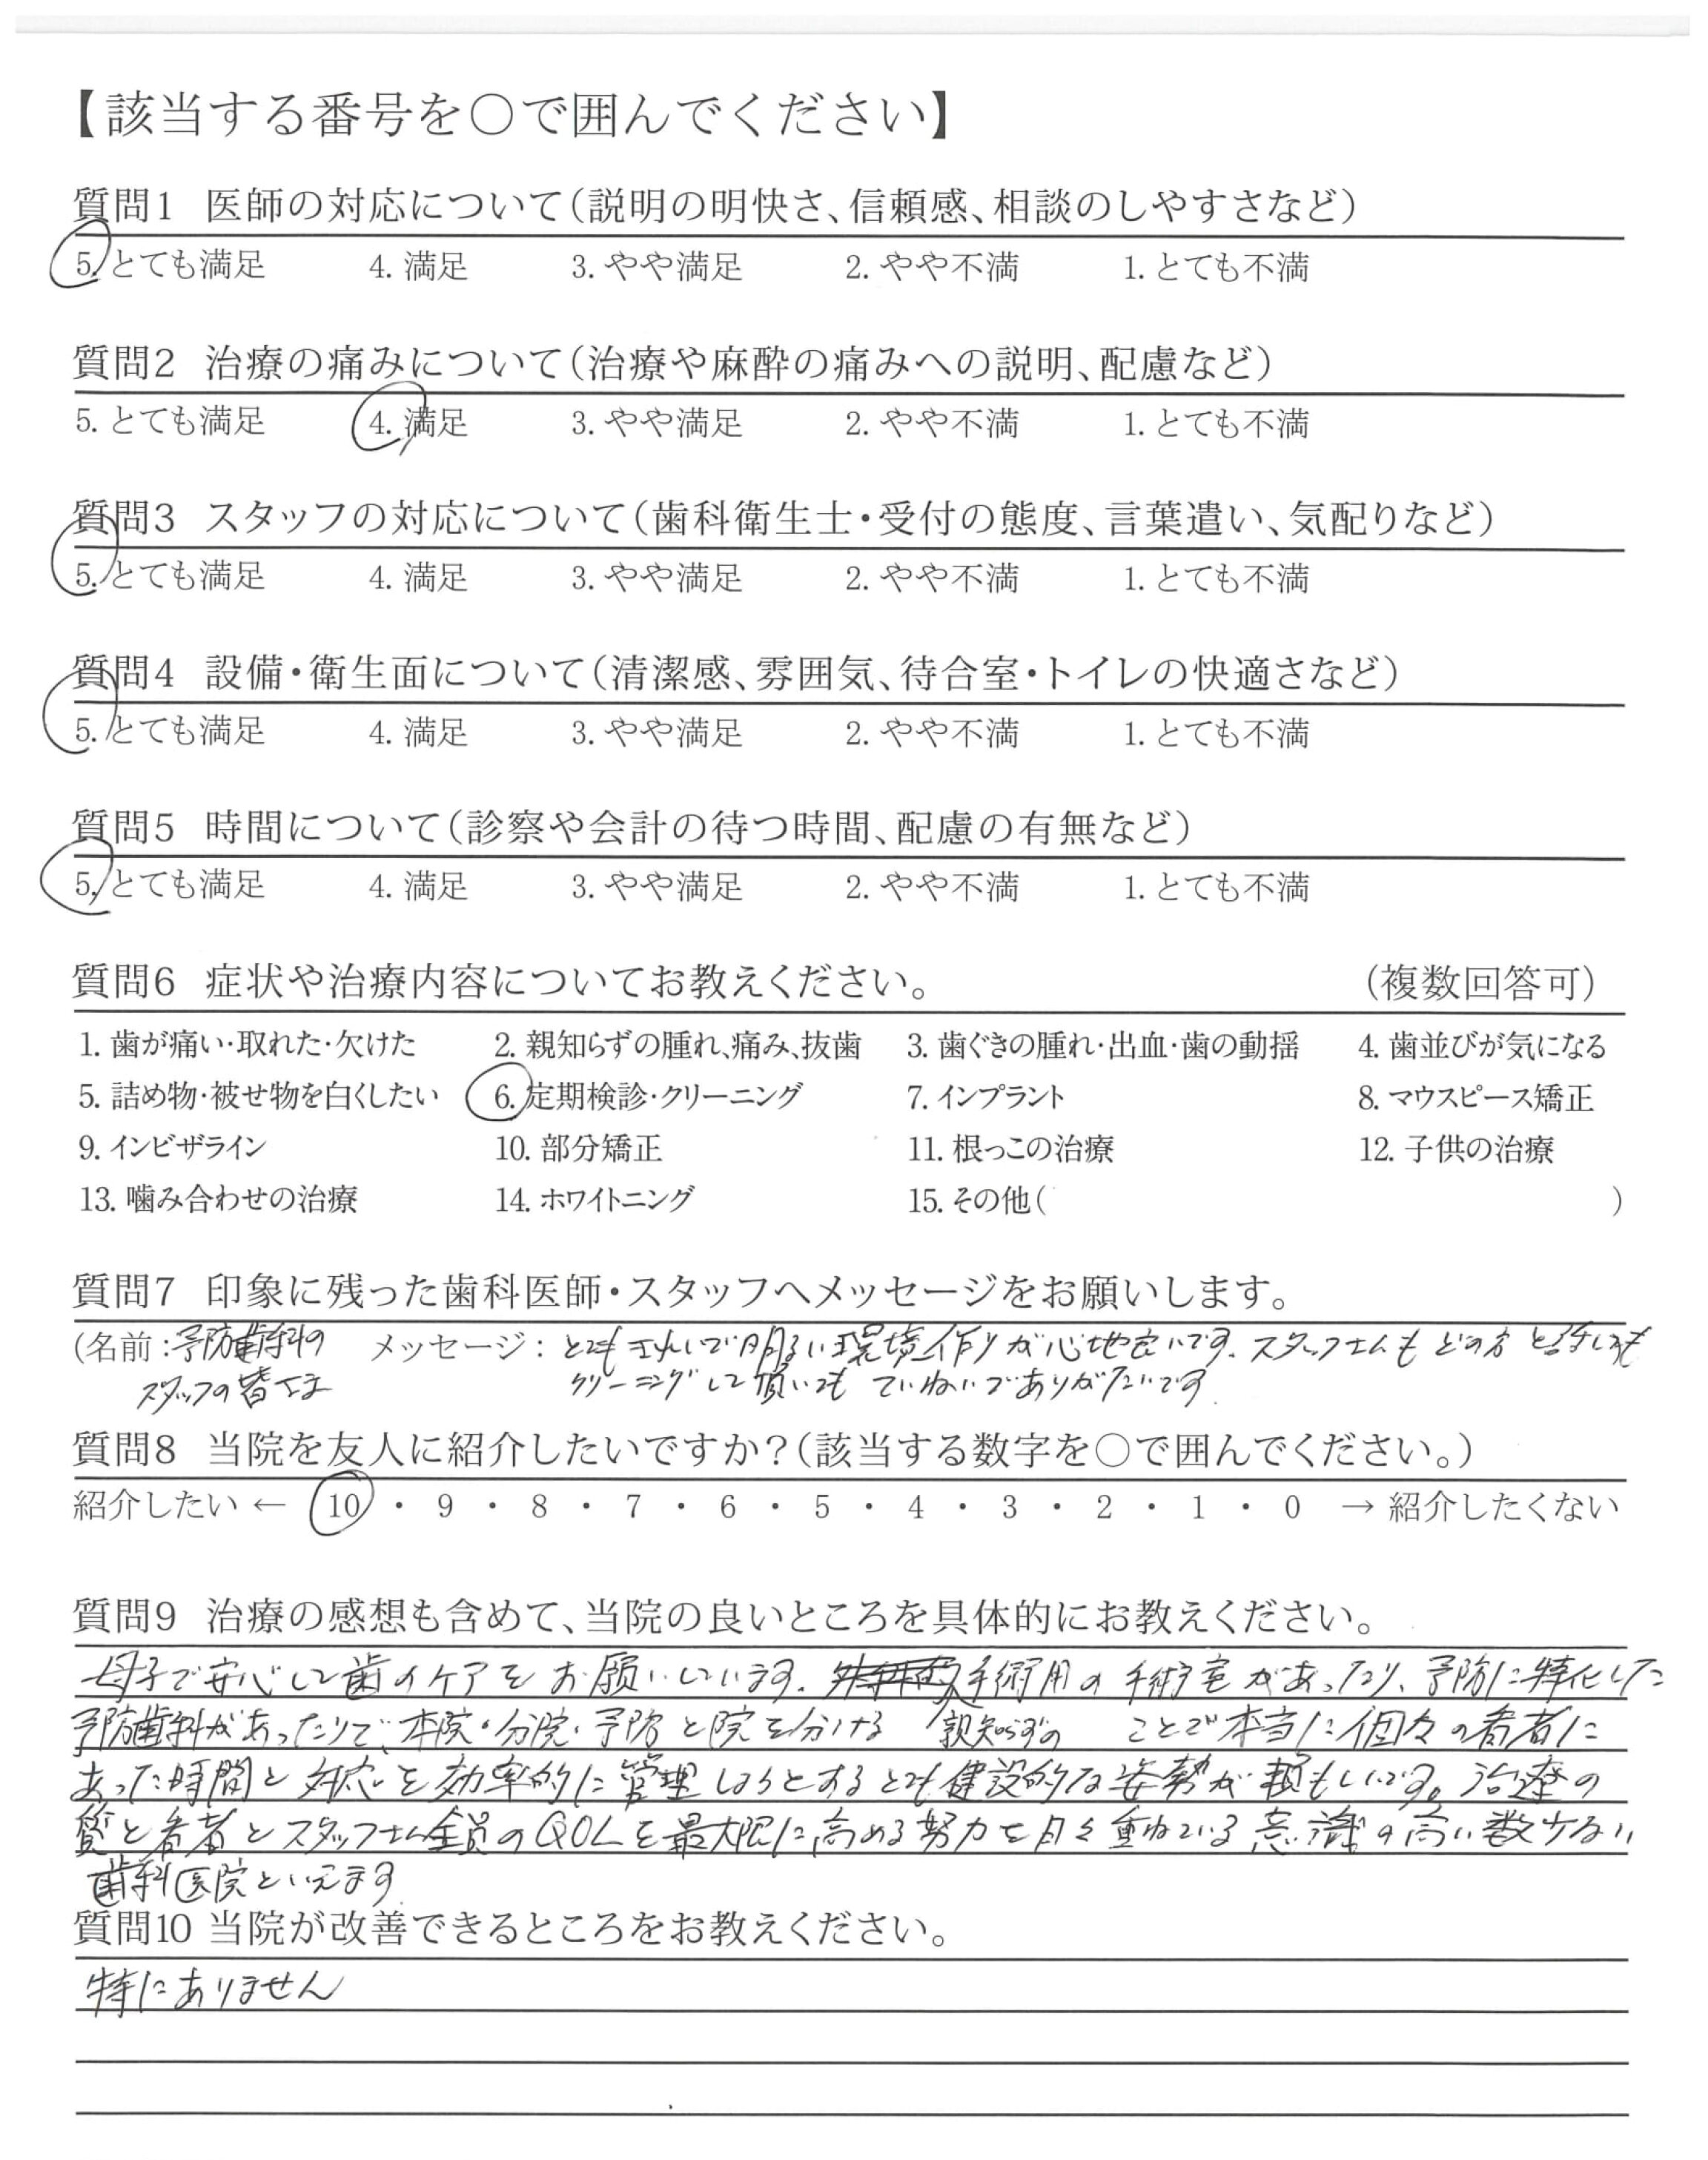 【該当する番号を○で囲んでください】
質問1 医師の対応について(説明の明快さ、信頼感、相談のしやすさなど)
5. とても満足 4. 満足 3. やや満足 2. やや不満 1. とても不満
質問2 治療の痛みについて(治療や麻酔の痛みへの説明、配慮など)
5. とても満足 4. 満足 3. やや満足 2. やや不満 1. とても不満
質問3 スタッフの対応について(歯科衛生士・受付の態度、言葉遣い、気配りなど)
5. とても満足 4. 満足 3. やや満足 2. やや不満 1. とても不満
質問4 設備・衛生面について(清潔感、雰囲気、待合室・トイレの快適さなど)
5. とても満足 4. 満足 3. やや満足 2. やや不満 1. とても不満
質問5 時間について(診察や会計の待つ時間、配慮の有無など)
5. とても満足 4. 満足 3. やや満足 2. やや不満 1. とても不満
質問6 症状や治療内容についてお教えください。 (複数回答可)
1. 歯が痛い・取れた・欠けた 2. 親知らずの腫れ、痛み、抜歯 3. 歯ぐきの腫れ・出血・歯の動揺 4. 歯並びが気になる
5. 詰め物・被せ物を白くしたい 6. 定期検診・クリーニング 7. インプラント 8. マウスピース矯正
9. インビザライン 10. 部分矯正 11. 根っこの治療 12. 子供の治療
13. 噛み合わせの治療 14. ホワイトニング 15. その他( )
質問7 印象に残った歯科医師・スタッフへメッセージをお願いします。
(名前:予防歯科の メッセージ:とてもきれいで明るい環境作りが心地良いです。スタッフさんもどの方と話しても
スタッフの皆さま クリーニングして頂いても ていねいでありがたいです.
質問8 当院を友人に紹介したいですか?(該当する数字を○で囲んでください。)
紹介したい ← 10 ・ 9 ・ 8 ・ 7 ・ 6 ・ 5 ・ 4 ・ 3 ・ 2 ・ 1 ・ 0 → 紹介したくない
質問9 治療の感想も含めて、当院の良いところを具体的にお教えください。
母子で安心して歯のケアをお願いしています. 手術用の手術室があったり、予防に特化した
予防歯科があったりで、本院・分院・予防と院を分ける 親知らずの ことで本当に個々の患者に
あった時間と対応を効率的に管理しようとするとても建設的な姿勢が頼もしいです。治療の
質と患者とスタッフさん全員のQOLを最大限に高める努力を日々重ねている意識の高い数少ない
歯科医院といえます.
質問10 当院が改善できるところをお教えください。
特にありません